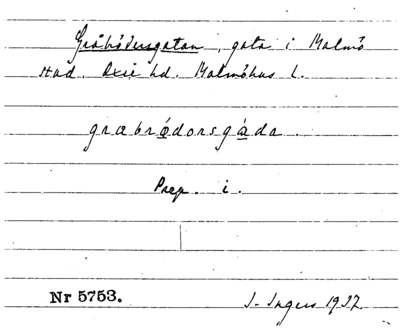 Gråbrödersgatan, gata i Malmö
stad, Oxie hd. Malmöhus l.
græbrǿdorsgáda.
Prep. i.
Nr 5753. J. Ingers 1937